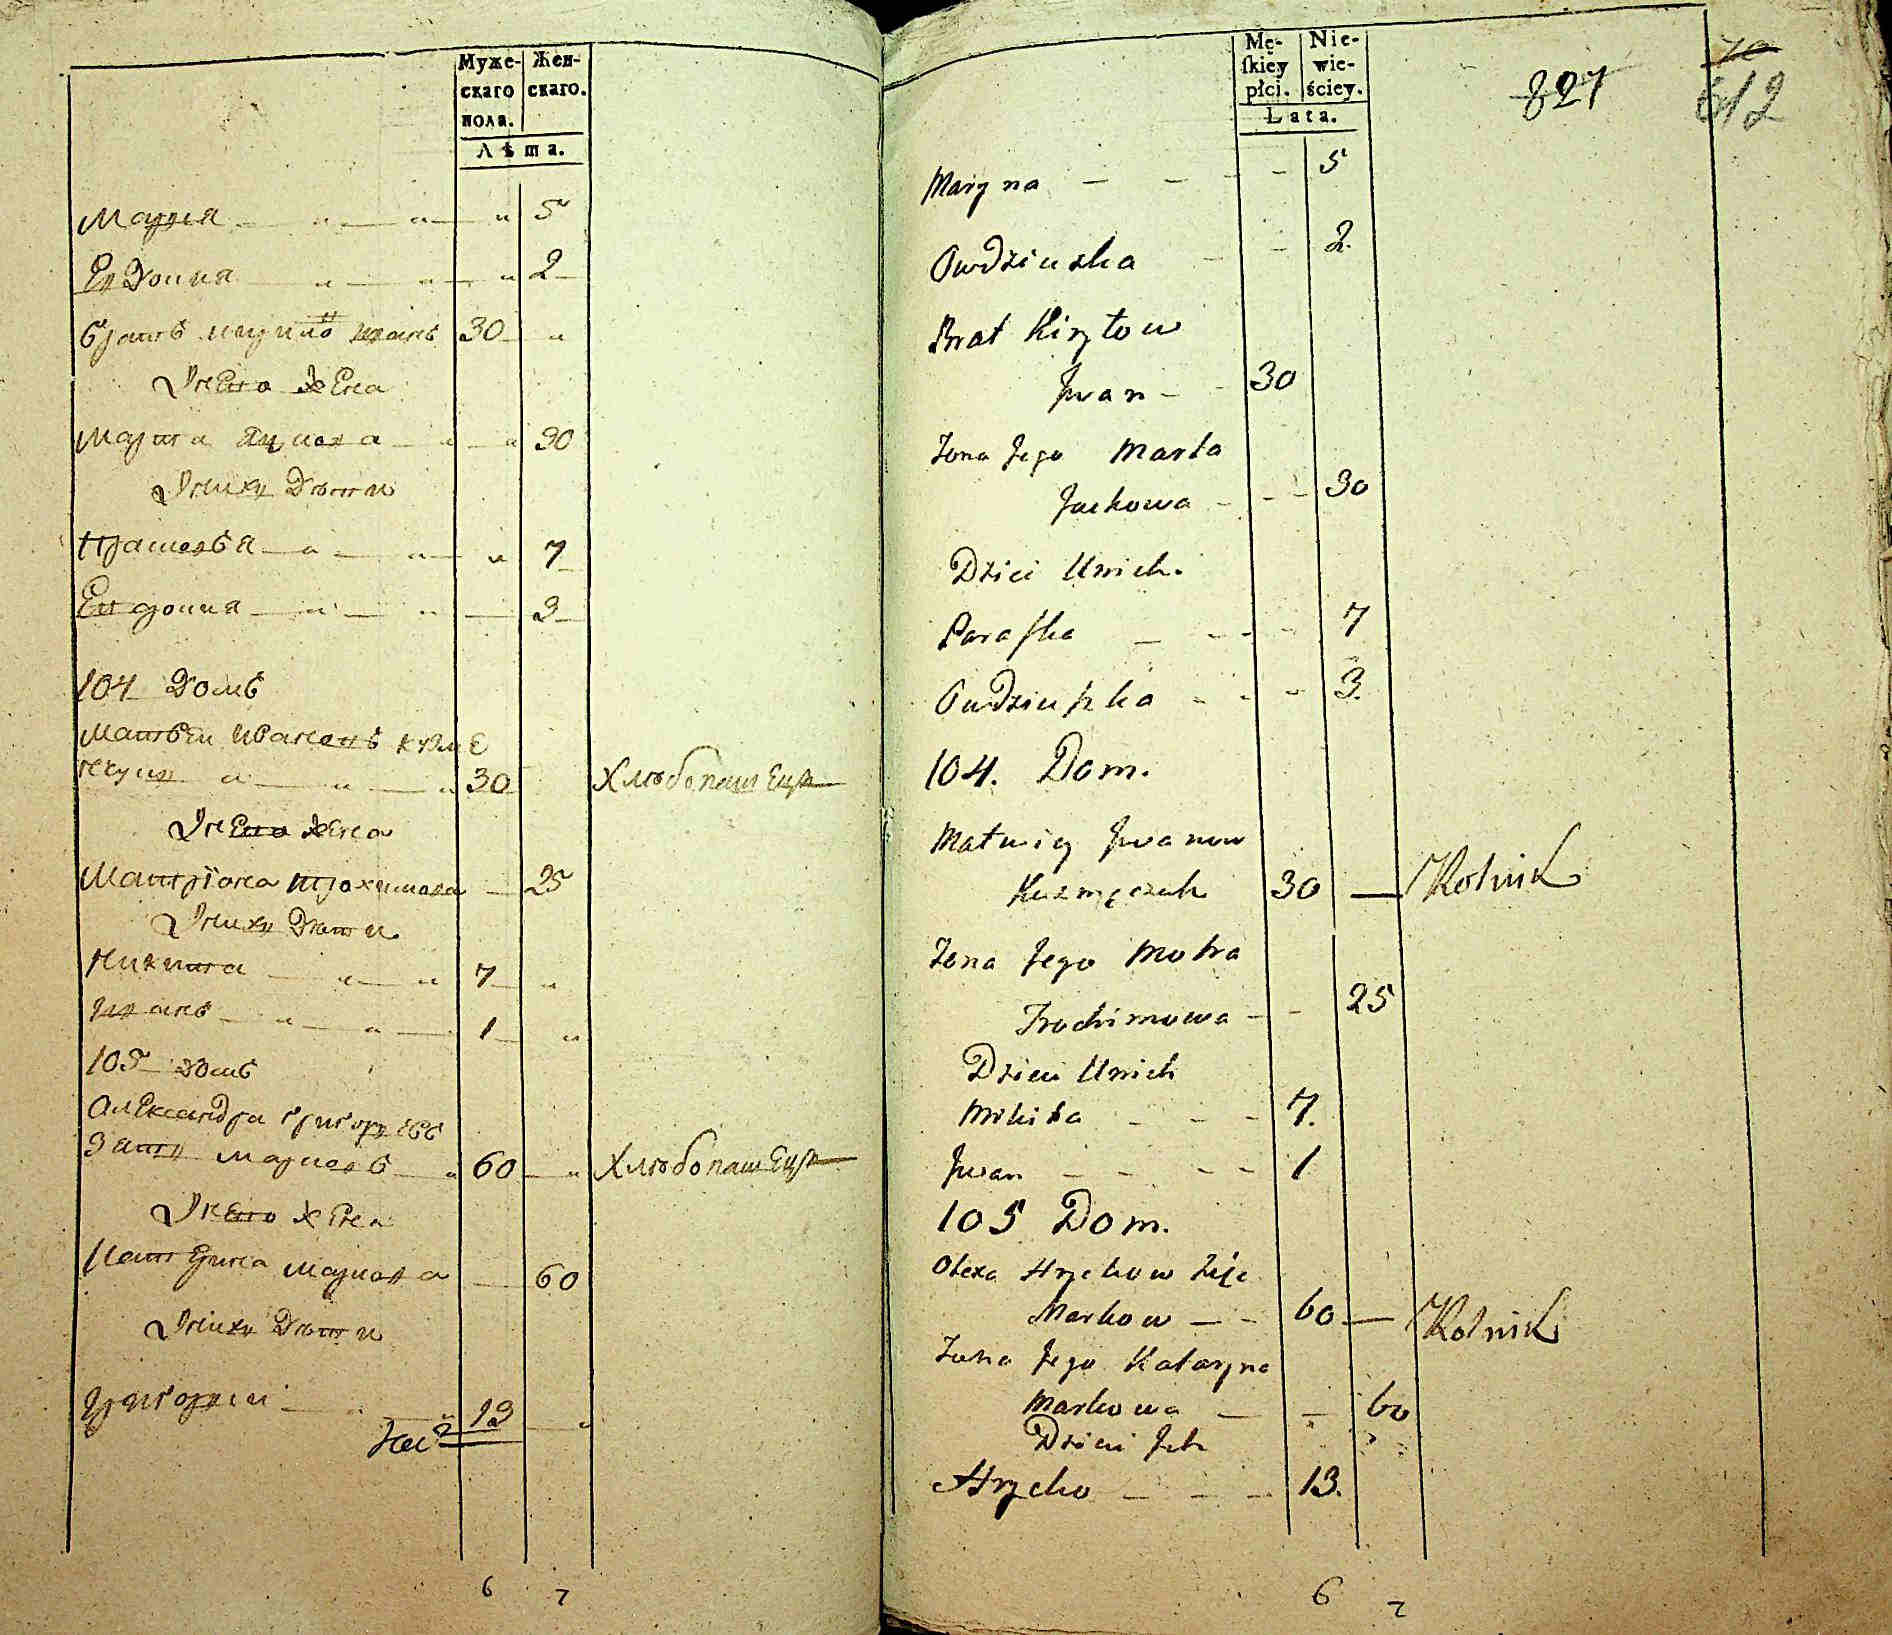 Муже-
скаго
пола.
Жен-
скаго.
Лѣта.
Марія 5
Евдокиа 2
братъ Иванъ 30
Жена
Марта Яцкова 30
Дѣти
Прасковья 7
Евдокиа 3
104 Домъ
Матвѣй Ивановъ Кузме
30 Хлѣбопашецъ
Жена
Матріона Трохимова 25
Дѣти
Никита 7
Иванъ 1
105 домъ
Александра Григорьевъ
Зать Марковъ 60 Хлѣбопашецъ
Жена
Катерина Маркова 60
Дѣти
Григорей 13
6 7
Mę-
ſkiey
płci.
Nie-
wie-
ściey.
Lata.
827
70
612
Maryna 5
Owdziuszka 2.
Brat Kiryłow
Jwan 30
Żona Jego Marta
Jackowa 30
Dzieci Unich.
Paraſka 7
Owdziuſzka 3.
104. Dom.
Matwiey Jwanow
Kuzmęczuk 30 Rolnik
Żona Jego Motra
Trochimowa 25
Dzieci Unich
Mikita 7.
Jwan 1
105 Dom.
Olexa Hryckow Zięć
Markow 60 Rolnik
Żona Jego Kataryna
Markowa 60
Dzieci Ich
Hrycko 13.
6 7